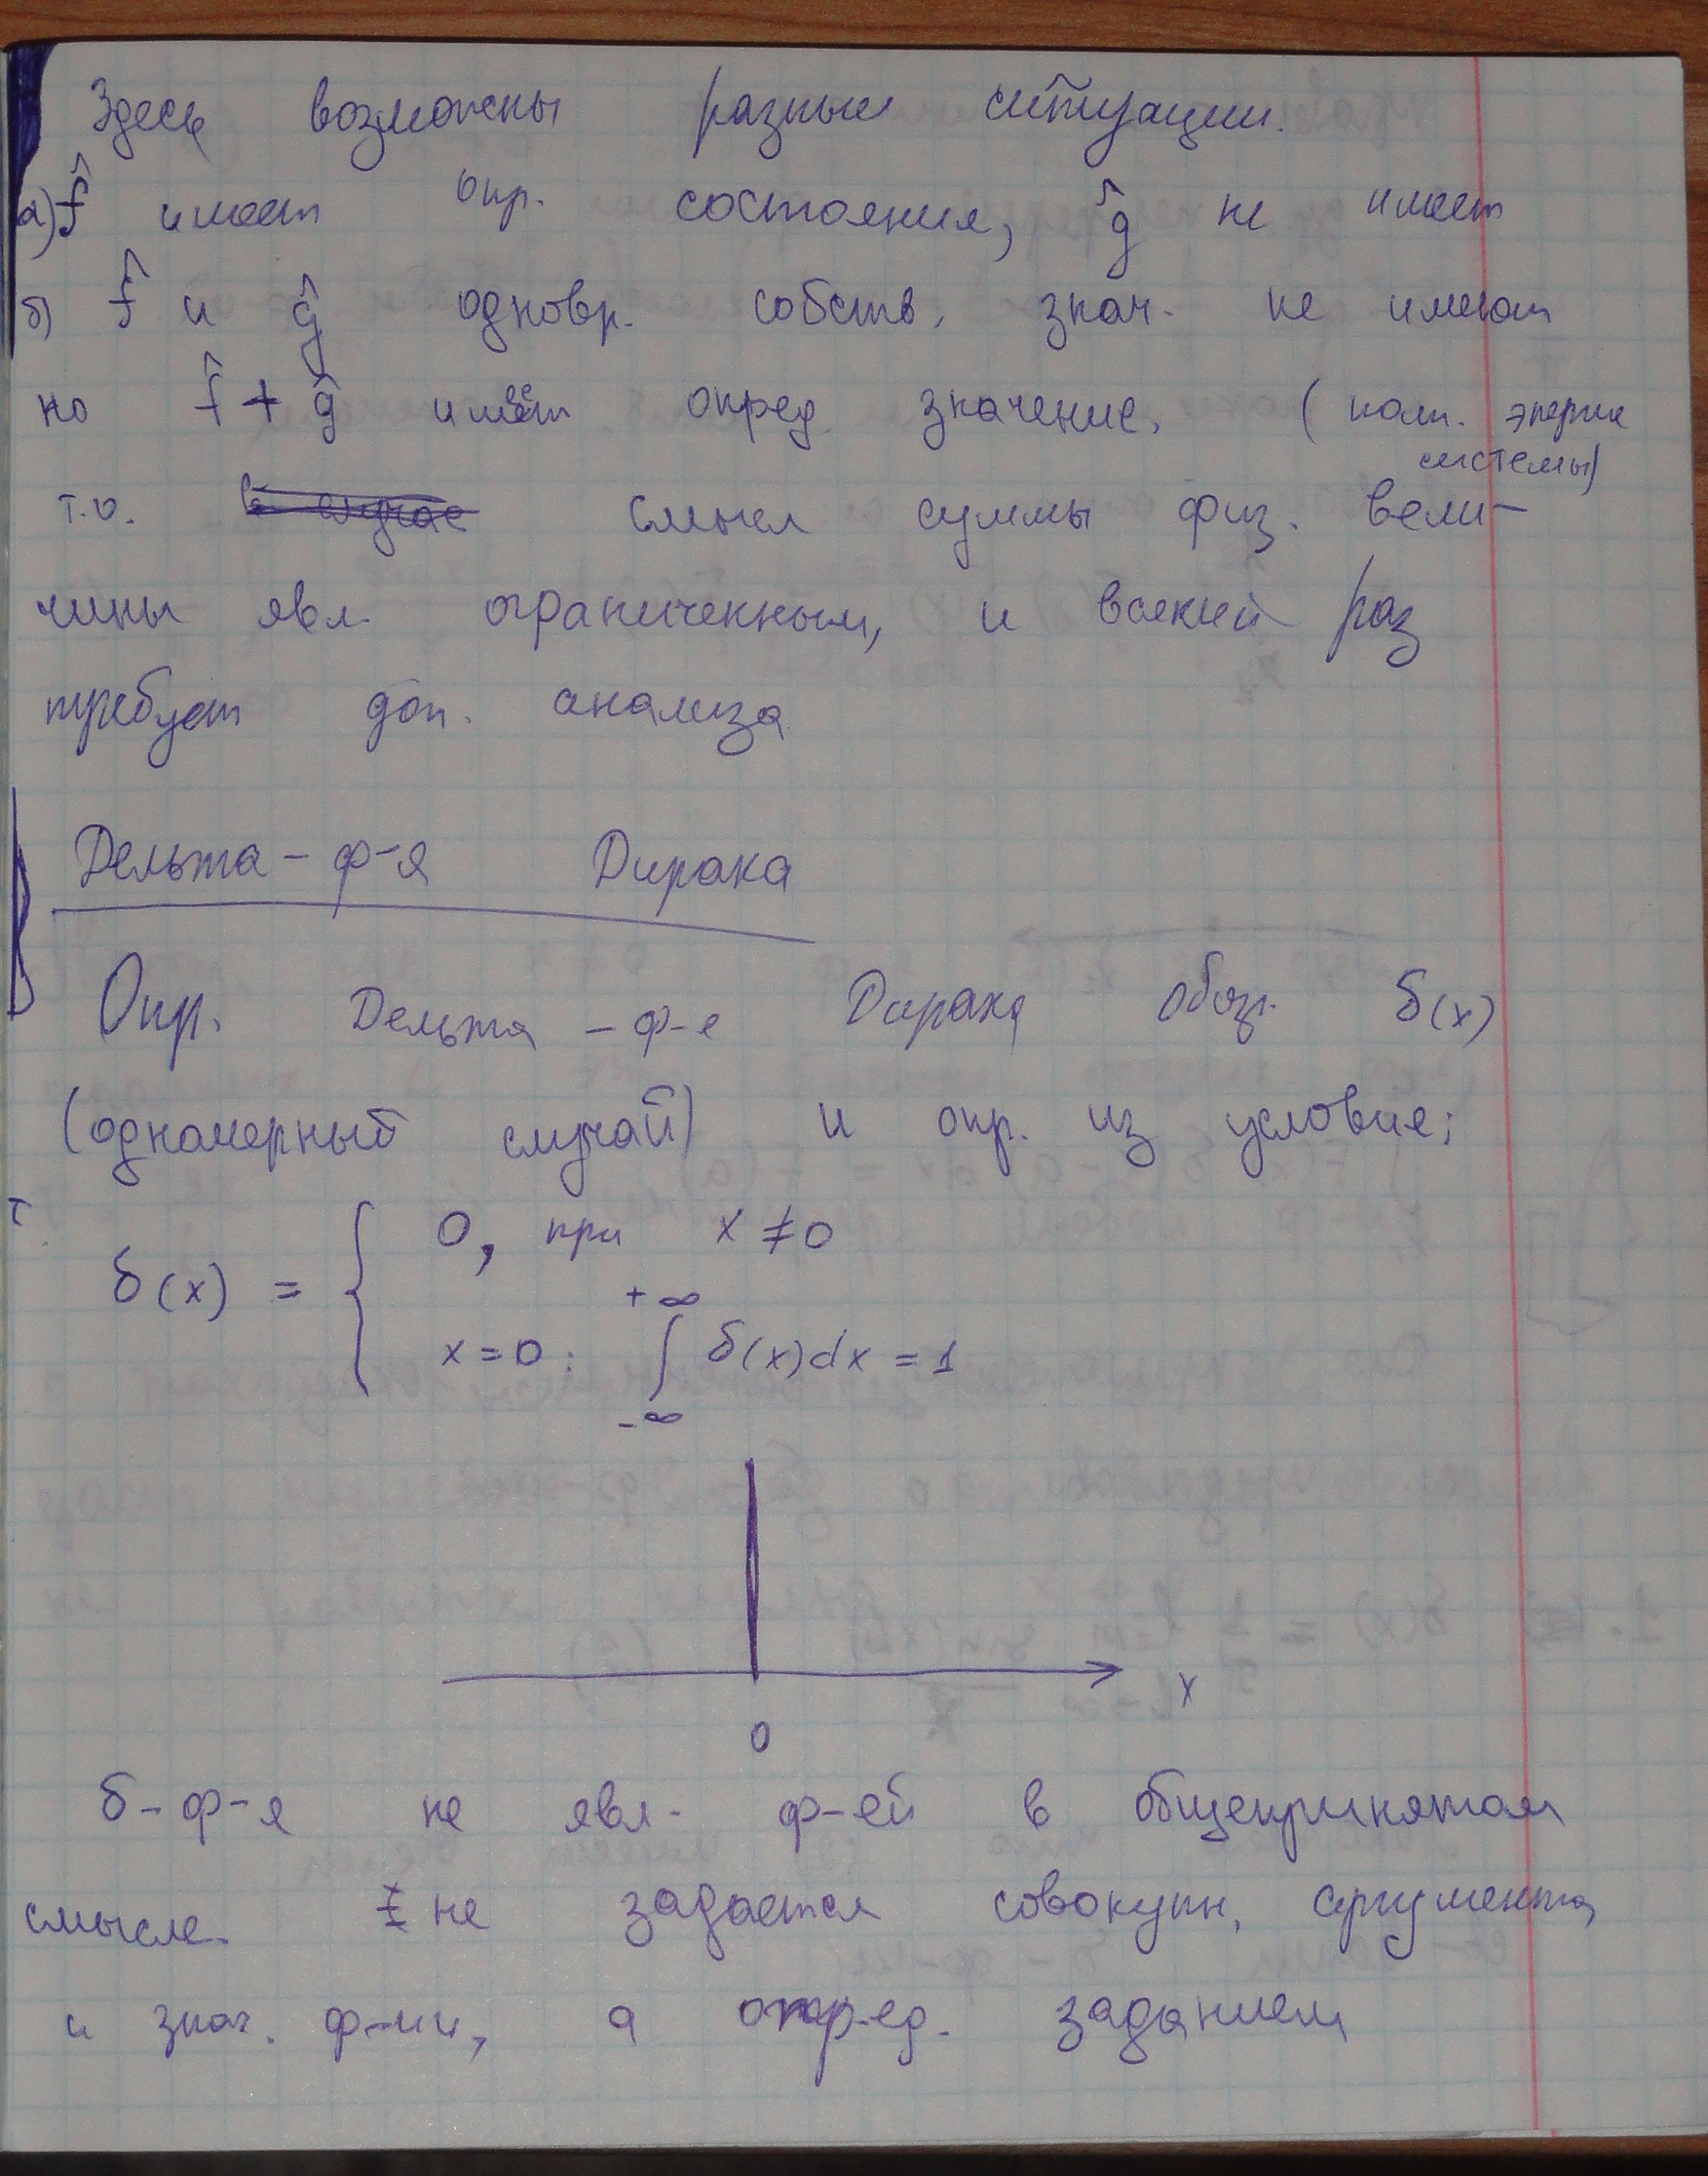 Здесь возможны разные ситуации.
а) f̂ имеет опр. состояния, ĝ не имеет
б) f̂ и ĝ одновр. собств. знач. не имеют
но f̂ + ĝ имеет опред. значение. (полн. энергия
системы)
т.о. смысл суммы физ. вели-
чины явл. ограниченным, и всякий раз
требует доп. анализа
Дельта - ф-я Дирака
Опр. Дельта - ф-я Дирака обозн. δ(x)
(одномерный случай) и опр. из условия:
δ(x) = { 0, при x ≠ 0
x = 0 : ∫ δ(x)dx = 1
+∞
-∞
x
0
δ - ф-я не явл. ф-ей в общепринятом
смысле. не задается совокупн. аргумента
и знач. ф-ии, а опред. заданием